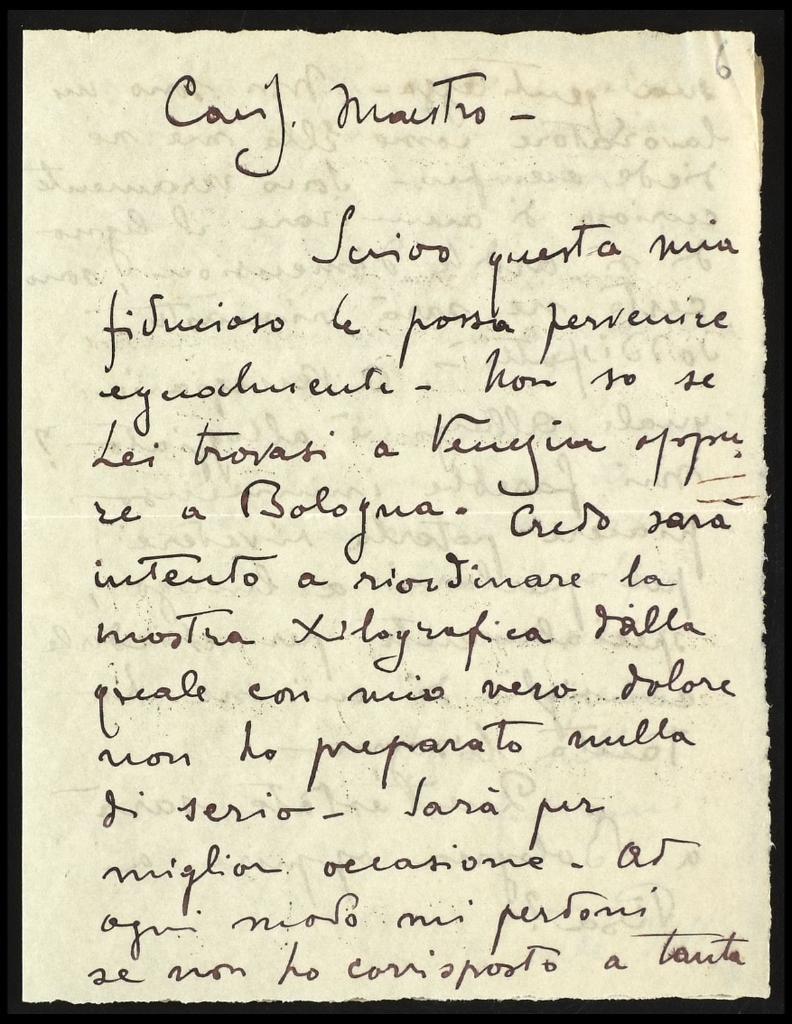 6
Cariss. Maestro -
Scrivo questa mia
fiducioso le possa pervenire
egualmente - Non so se
Lei trovasi a Venezia oppu-
re a Bologna. Credo sarà
intento a riordinare la
mostra Xilografica dalla
quale con mio vero dolore
non ho preparato nulla
di serio - Sarà per
miglior occasione. Ad
ogni modo mi perdoni
se non ho corrisposto a tanta